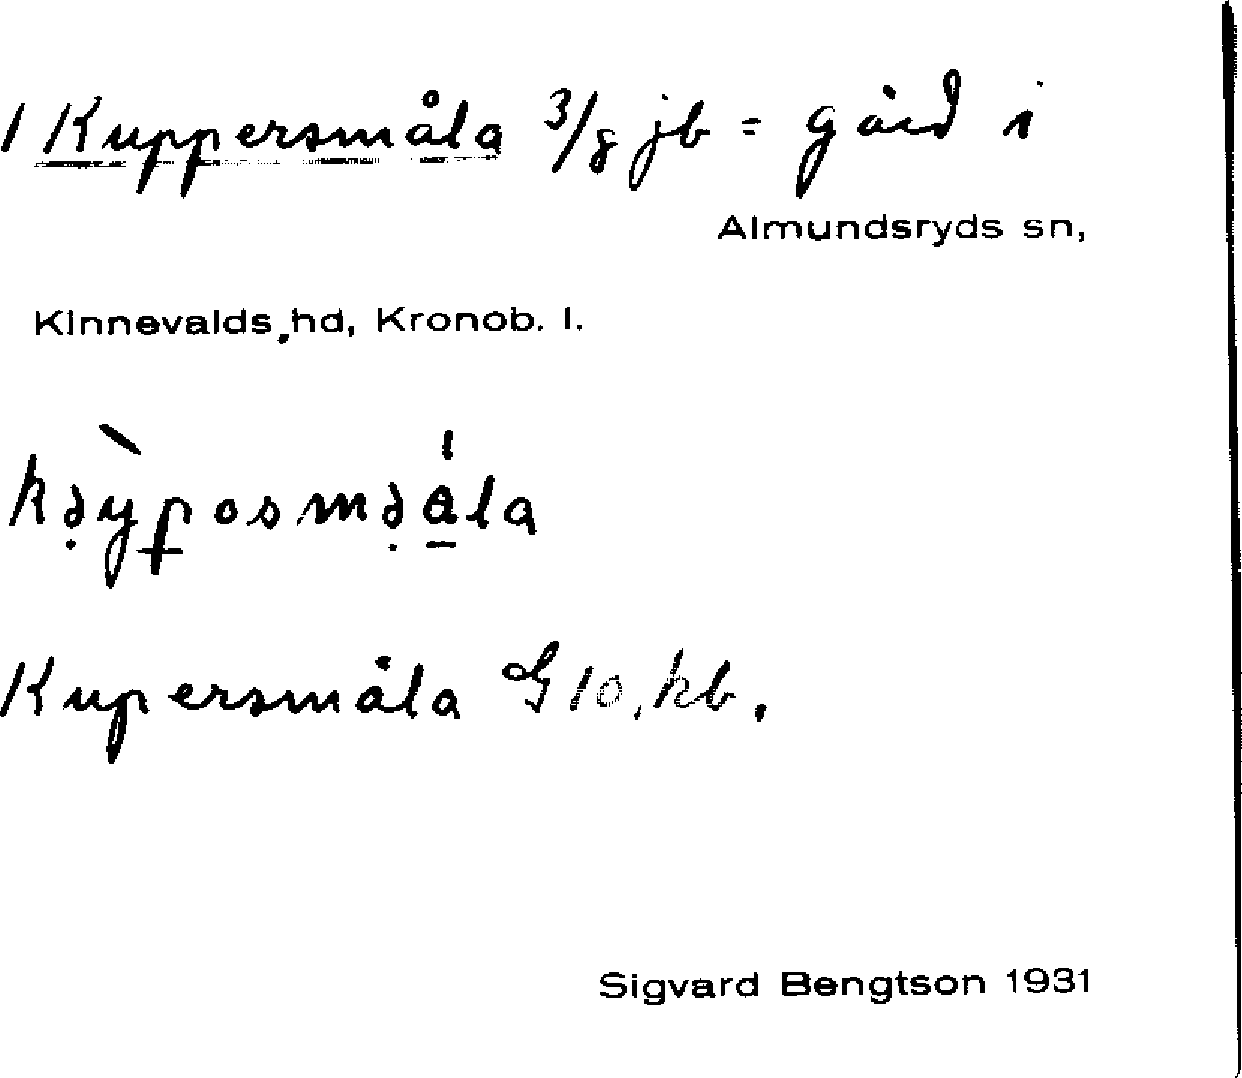 1 Kuppersmåla 3/8 jb = gård i
Almundsryds sn,
Kinnevalds hd, Kronob. l.
Kupersmåla G10, kb.
Sigvard Bengtson 1931